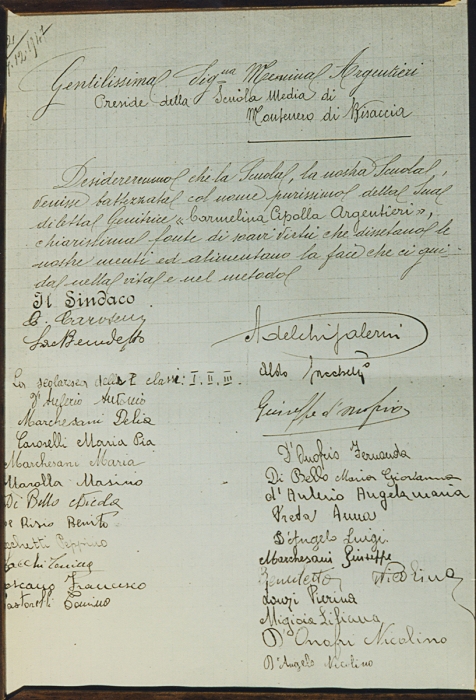 Gentilissima Sig.na Memena Argentieri
Preside della Scuola Media di
Montenero di Bisaccia
Desidereremmo che la Scuola, la nostra Scuola,
venisse battezzata col nome purissimo della Sua
diletta Genitrice "Carmelina Cipolla Argentieri",
chiarissima fonte di soavi virtù che disseta le
nostre menti ed alimentano la face che ci gui-
da nella vita e nel metodo
Il Sindaco
Adelchi Salerni
Lo Benedetto
Aldo
Giuseppe d'Onofrio
La scolaresca delle classi: I. II. III.
Antonio
Marchesani Delia
Caroselli Maria Pia
Marchesani Maria
Marolla Marino
Di Bello
De Risio Benito
Peppino
Francesco
Pastorelli
D'Onofrio Fernanda
Di Bello Maria Giovanna
d'Antonio Angelamaria
Preta Anna
D'Angelo Luigi
Marchesani Giuseppe
Benedetto Nicolina
Pierina
Migioia Lifiana
D'Onofri Nicolino
D'Angelo Nicolino